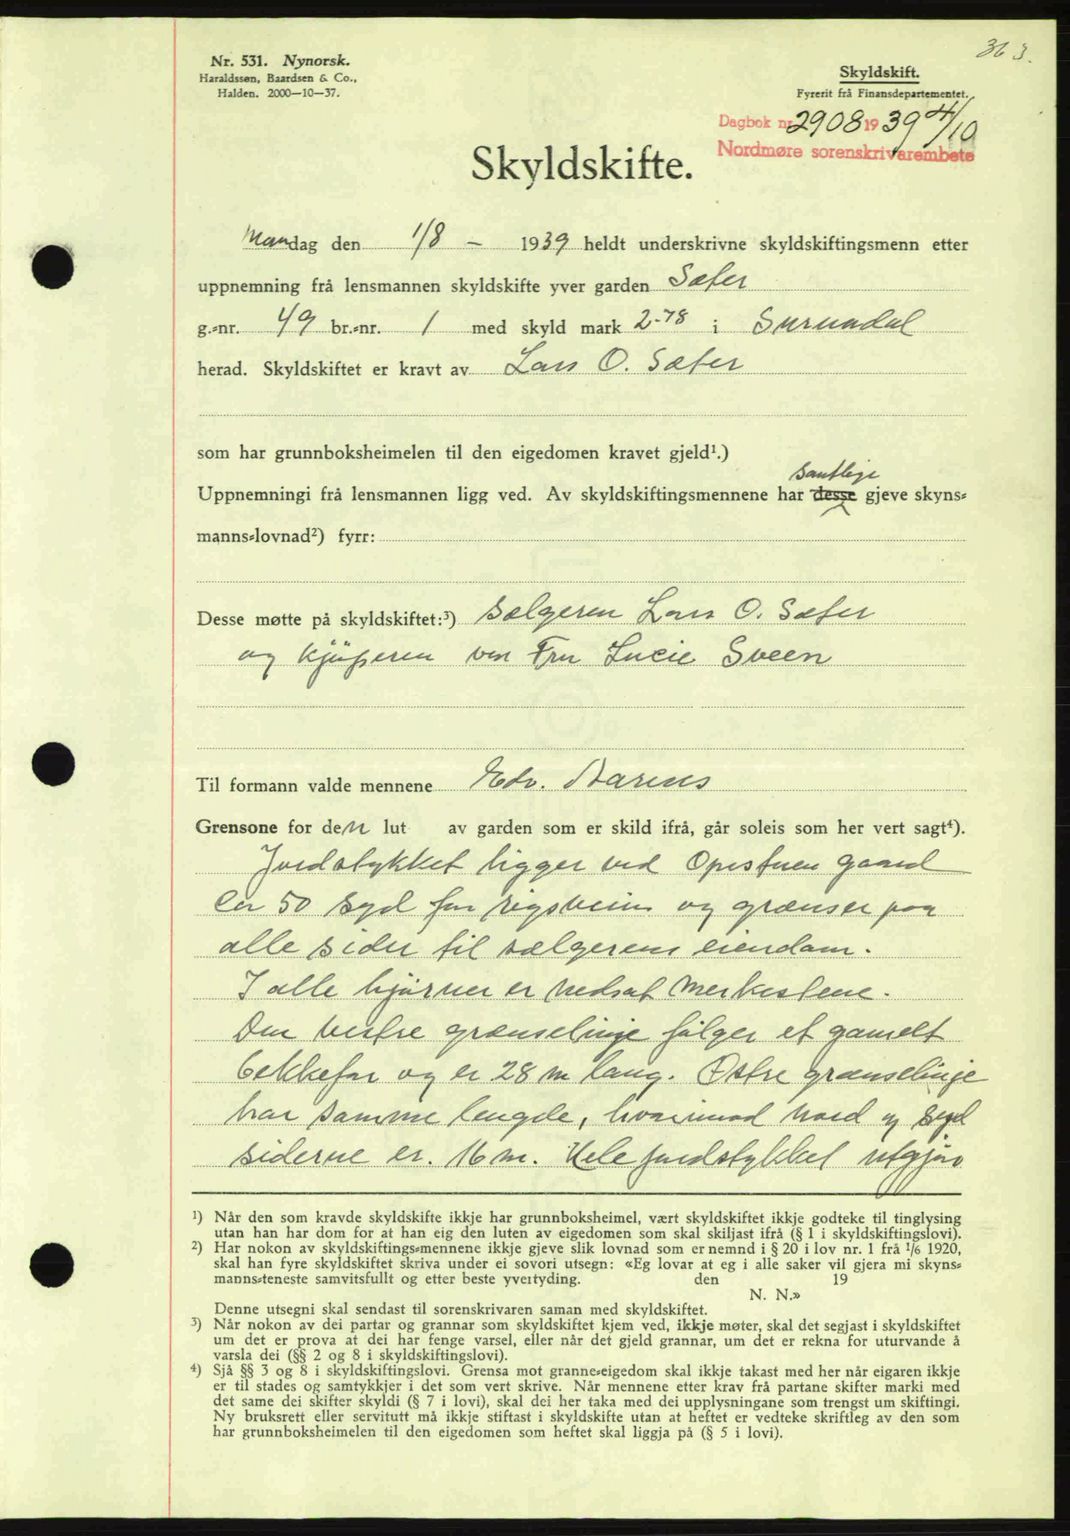 363.
Nr. 531. Nynorsk.
Haraldssøn, Baardsen & Co.,
Halden. 2000—10—37.
Skyldskift.
Fyrerit frå Finansdepartementet.
Dagbok nr. 2908 1939 4/10
Nordmøre sorenskrivarembete
Skyldskifte.
Mandag den 1/8 - 1939 heldt underskrivne skyldskiftingsmenn etter
uppnemning frå lensmannen skyldskifte yver garden Sæter
g.-nr. 49 br.-nr. 1 med skyld mark 2-78 i Surundal
herad. Skyldskiftet er kravt av Lars O. Sæter
som har grunnboksheimelen til den eigedomen kravet gjeld¹.)
samtlige
Uppnemningi frå lensmannen ligg ved. Av skyldskiftingsmennene har desse gjeve skyns-
manns-lovnad²) fyrr:
Desse møtte på skyldskiftet:³) Sælgeren Lars O. Sæter
og kjøperen ved Fru Lucie Sveen
Til formann valde mennene Edv. Aarnes
Grensone for den lut av garden som er skild ifrå, går soleis som her vert sagt⁴).
Jordstykket ligger ved Opistuen gaard
ca 50 syd for rigsveien og grænser paa
alle sider til sælgerens eiendom.
I alle hjørner er nedsat merkestene.
Den vestre grænselinje følger et gamelt
bekkefar og er 28 m lang. Østre grænselinje
har samme lengde, hvorimod nord og syd
siderne er. 16 m. Hele jordstykket utgjør
¹) Når den som kravde skyldskifte ikkje har grunnboksheimel, vært skyldskiftet ikkje godteke til tinglysing
utan han har dom for at han eig den luten av eigedomen som skal skiljast ifrå (§ 1 i skyldskiftingslovi).
²) Har nokon av skyldskiftings-mennene ikkje gjeve slik lovnad som er nemnd i § 20 i lov nr. 1 frå 1/6 1920,
skal han fyre skyldskiftet skriva under ei sovori utsegn: «Eg lovar at eg i alle saker vil gjera mi skyns-
manns-teneste samvitsfullt og etter beste yveityding. den 19
N. N.»
Denne utsegni skal sendast til sorenskrivaren saman med skyldskiftet.
³) Når nokon av dei partar og grannar som skyldskiftet kjem ved, ikkje møter, skal det segjast i skyldskiftet
um det er prova at dei har fenge varsel, eller når det gjeld grannar, um det er rekna for uturvande å
varsla dei (§§ 2 og 8 i skyldskiftingslovi).
⁴) Sjå §§ 3 og 8 i skyldskiftingslovi. Grensa mot granne-eigedom skal ikkje takast med her når eigaren ikkje
er til stades og samtykkjer i det som vert skrive. Når mennene etter krav frå partane skifter marki med
det same dei skifter skyldi (§ 7 i lovi), skal dei her taka med dei upplysningane som trengst um skiftingi.
Ny bruksrett eller servitutt må ikkje stiftast i skyldskifte utan at heftet er vedteke skriftleg av den som
har grunnboksheimelen til den eigedomen som heftet skal liggja på (§ 5 i lovi).